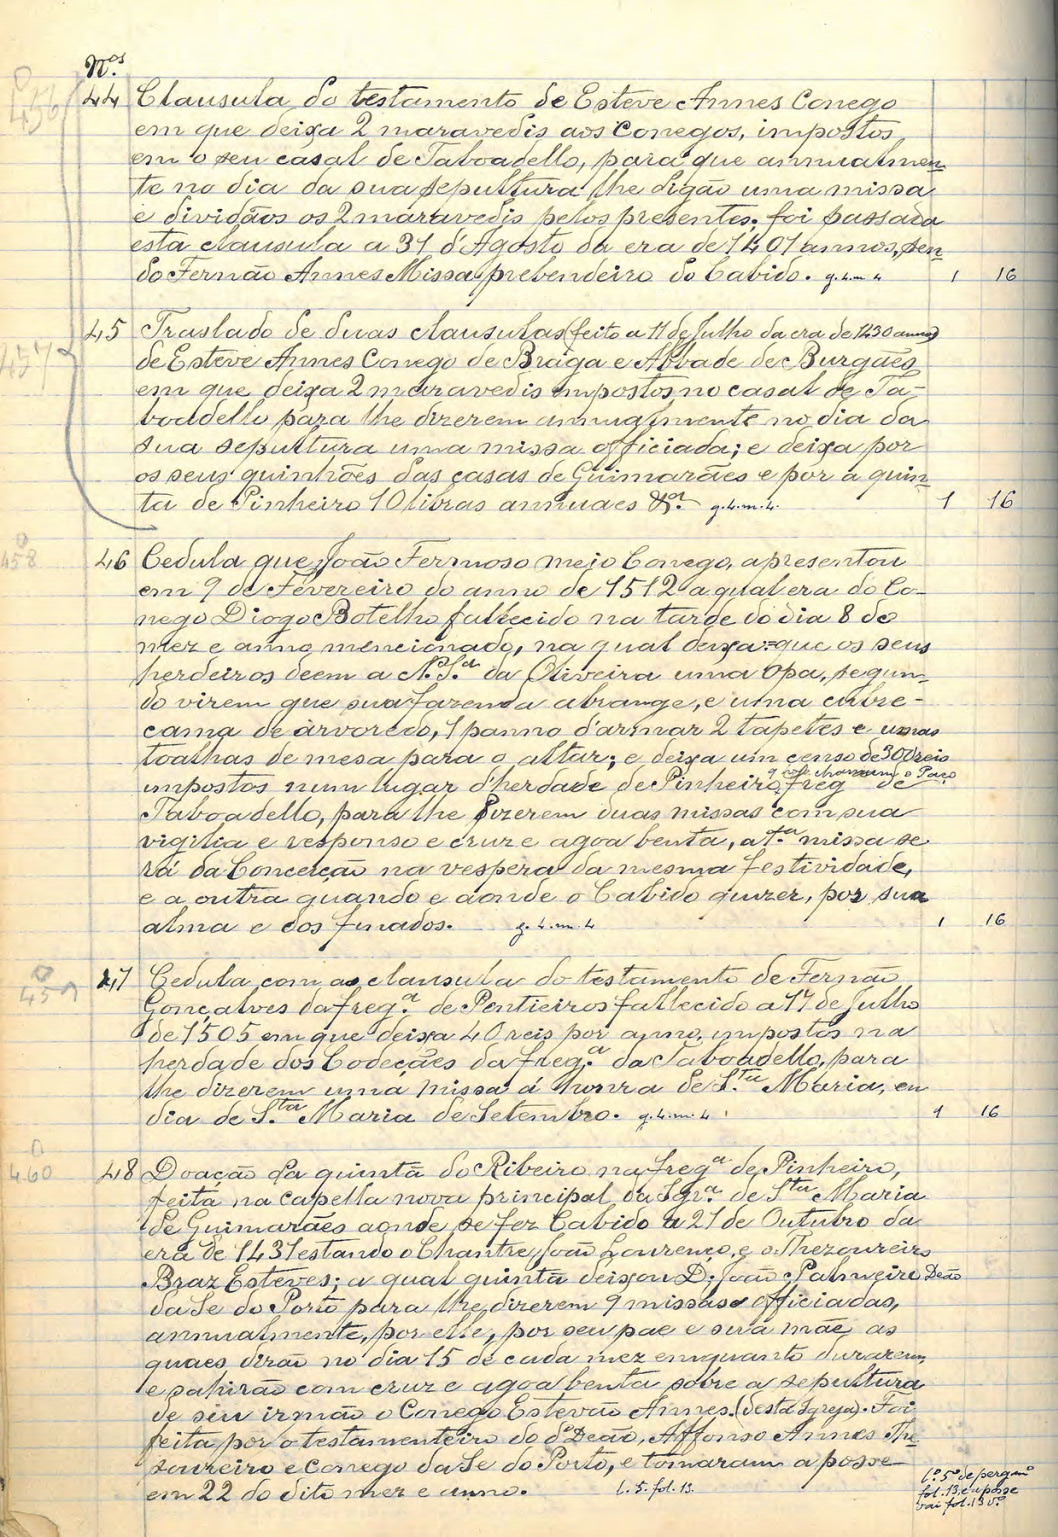 Nos
44 Clausula do testamento de Esteve Annes Conego
em que deixa 2 maravedis aos Conegos, impostos
em o seu casal de Taboadello, para que annualmen-
te no dia da sua sepultura lhe digão uma missa
e dividãos os 2 maravedis pelos presentes; foi passada
esta clausula a 31 d'Agosto da era de 1401 annos, sen-
do Fernão Annes Missa prebendeiro do Cabido. g. 4. m. 4 1 16
45 Traslado de duas clausulas (feito a 11 de Julho da era de 1430 annos)
de Esteve Annes Conego de Braga e Abbade de Burgães
em que deixa 2 maravedis impostos no casal de Ta-
boadello para lhe dizerem annualmente no dia da
sua sepultura uma missa officiada; e deixa por
os seus quinhões das casas de Guimarães e por a quin-
ta de Pinheiro 10 livras annuaes &a. g. 4. m. 4. 1 16
457
46 Cedula que João Fermoso meio Conego, apresentou
458
em 9 de Fevereiro do anno de 1512 a qual era do Co-
nego Diogo Botelho fallecido na tarde do dia 8 do
mez e anno mencionado, na qual deixa: que os seus
herdeiros deem a N. S.a da Oliveira uma opa, segun-
do virem que sua fazenda abrange, e uma cubre-
cama de arvoredo, 1 panno d'armar 2 tapetes e umas
toalhas de mesa para o altar; e deixa um censo de 300 reis
impostos num lugar d'herdade de Pinheiro, q chamam o Paço freg.a de
Taboadello, para lhe dizerem duas missas com sua
vigilia e responso e cruz e agoa benta, a 1.a missa se-
rá da Conceição na vespera da mesma festividade,
e a outra quando e aonde o Cabido quizer, por sua
alma e dos finados. g. 4. m. 4 1 16
47 Cedula com a clausula do testamento de Fernão
459
Gonçalves da freg.a de Pentieiros fallecido a 17 de Julho
de 1505 em que deixa 40 reis por anno, impostos na
herdade dos Codeções da freg.a da Taboadello, para
lhe dizerem uma missa á honra de S.ta Maria, em
dia de S.ta Maria de Setembro. g. 4. m. 4 1 16
48 Doação da quintã do Ribeiro na freg.a de Pinheiro,
460
feita na capella nova principal da Igr.a de S.ta Maria
de Guimarães aonde se fez Cabido a 21 de Outubro da
era de 1431 estando o Chantre João Lourenço, e o Thezoureiro
Braz Esteves; a qual quintã deixou D. João Palmeiro Deão
da Se do Porto para lhe dizerem 9 missas officiadas,
annualmente, por elle, por seu pae e sua mãe, as
quaes dirão no dia 15 de cada mez emquanto durarem,
e sahirão com cruz e agoa benta sobre a sepultura
de seu irmão o Conego Estevão Annes (desta Igreja). Foi
feita por o testamenteiro do d.o Deão, Affonso Annes The-
soureiro e Conego da Se do Porto, e tomaram a posse
em 22 do dito mez e anno. l. 5. fol. 13.
l.o 5.o de pergam.o
fol. 13. e a posse
vai fol. 13 v.o